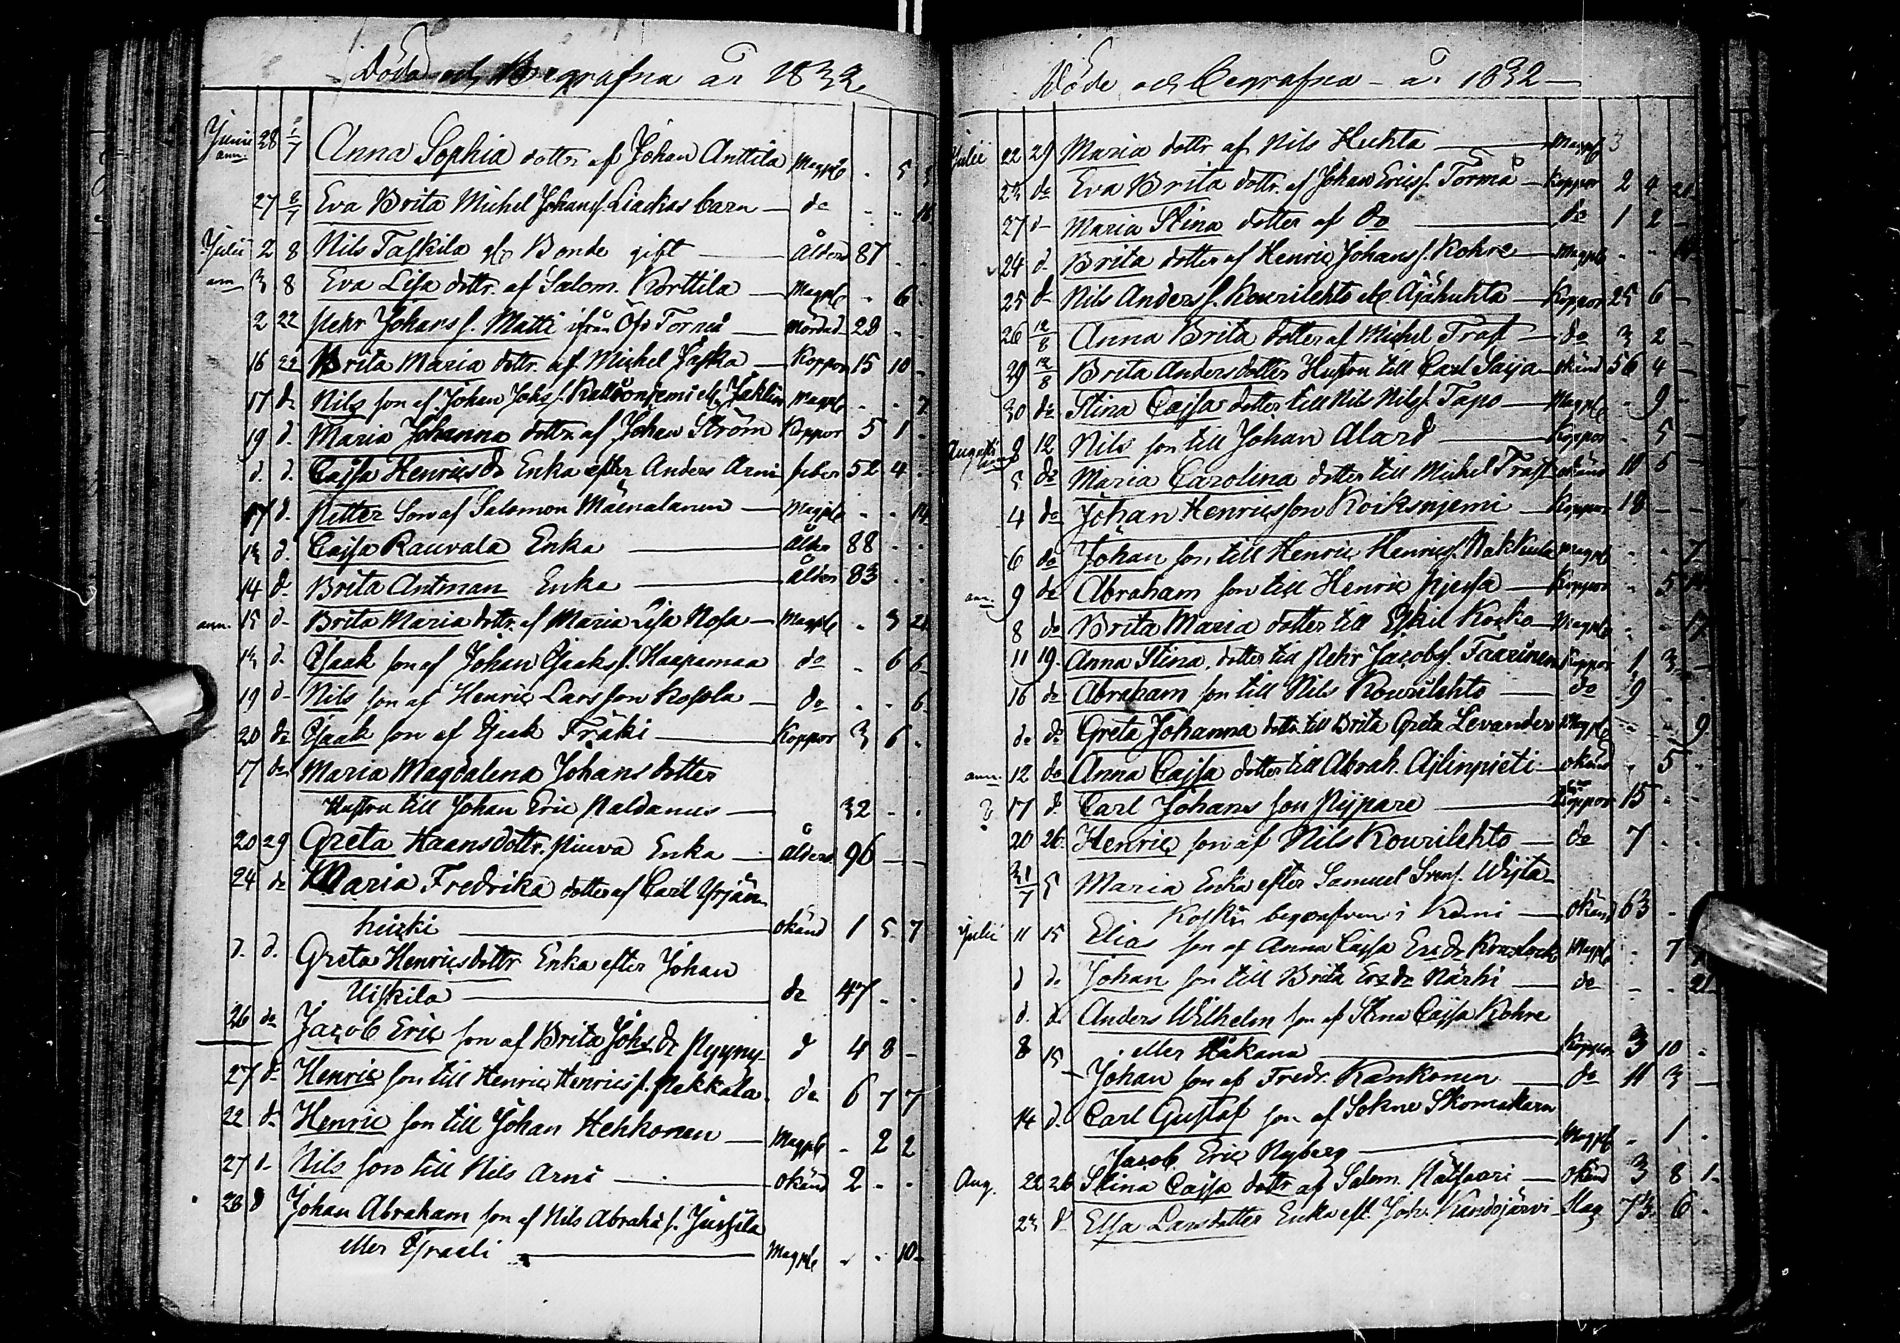 Döde och Begrafne år 1832
Junii 28 1/7 Anna Sophia dottr af Johan Anttila Magpl - 5 3
27 8/7 Eva Brita Michel Johans s. Liackas barn - do - - 18
Julii 2 8 Nils Taskila Bonde gift - Ålder 87 - -
3 8 Eva Lisa dottr. af Salom. Korttila - Magpl - 6 -
2 22 Pehr Johans s. Matti ifrån Öfr Torneå - Mördad 28 - -
16 22 Brita Maria dottr. af Michel Paska - Koppor 15 10 -
17 do Nils son af Johan Johs s. Magpl - - 7
19 d. Maria Johanna dottr af Johan Ström Koppor 5 1 -
d. d. Cajsa Henricsdr Enka efter Anders Arni feber 52 4 -
17 d. Petter Son af Salomon Mäenalanen - Magpl - - 14
13 d. Cajsa Rauvala Enka - Ålder 88 - -
14 d. Brita Antman Enka - Ålder 83 - -
ann. 15 d. Brita Maria dottr. af Maria Lisa Rosa - Magpl - 3 21
13 d. Isaak son af Johan Isaaks s. Haapamaa do - 6 6
19 d. Nils son af Henric Larsson Rossla - do - - 6
20 do Isaak son af Isak Fräki - Koppor 3 6 -
17 do Maria Magdalena Johans dotter
Hustru till Johan Eric Paldanus - 32 - -
20 29 Greta Haansdottr. Piuva Enka - Ålder 96 - -
24 do Maria Fredrika dotter af Carl Yrjän
heikki - okänd 1 5 7
d. d. Greta Henricsdottr Enka efter Johan
Uiskila - do 47 - -
26 do Jacob Eric son af Brita Johs dr Pyyny d 4 8 -
27 do Henric son till Henric Henrics s. Pakkala do 6 7 7
22 do Henric son till Johan Hehkonen - Magpl - 2 2
27 d. Nils son till Nils Arni - okänd 2 - -
28 d Johan Abraham son af Nils Abrahs s. Jussila
eller Israeli - Magpl - - 10
Döde och Begrafne - år 1832 -
Julii 22 29 Maria dottr af Nils Huhta - Magpl 3
23 do Eva Brita dottr. af Johan Erics s. Törmä - Koppor 2 4 21
27 d. Maria Stina dotter af do - do 1 2 -
24 d. Brita dotter af Henric Johans s. Kohre - Magpl - - 14
25 d. Nils Anders s. Kourilehto Äijähuhta - Koppor 25 6 -
26 12/8 Anna Brita dotter af Michel Trast - do 3 2 -
29 12/8 Brita Andersdotter Hustru till Carl Saija - okänd 56 4 -
30 do Stina Cajsa dotter till Nils Nils s. Tapo - Magpl - 9 -
Augusti 2 12 Nils son till Johan Alard - Koppor - 5 -
5 do Maria Carolina dotter till Michel Trast okänd 11 5 -
4 do Johan Henricsson Koiksniemi - Koppor 18 - -
6 do Johan son till Henric Henrics s. Nakkula Magpl - - 7
ann. 9 do Abraham son till Henric Pjessa - Koppor - 5 14
8 do Brita Maria dotter till Eskil Koski - Magpl - - 17
11 19 Anna Stina dotter till Pehr Jacobs s. Taarinen Koppor 1 3 -
16 do Abraham son till Nils Kourilehto - do - 9 - -
do do Greta Johanna dottr till Brita Greta Levander Magpl - - 9
ann. 12 do Anna Cajsa dotter till Abrah. Ajlinpieti - okänd - 5 -
17 d. Carl Johans son Nypare - Koppor 15 - -
20 26 Henric son af Nils Kourilehto - do 7 - -
31/7 5 Maria Enka efter Samuel Svens s. Wiita
Koski begrafven i Kemi - okänd 63 -
Julii 11 15 Elias son af Anna Cajsa Ersdr Magpl - 7
d d. Johan son till Brita Ersdr Närhi - do - - 21
d. d. Anders Wilhelm son af Stina Cajsa Kohre
eller Håkana - Koppor 3 10 -
8 15 Johan son af Fredr. Kankonen - do 11 3 -
14 d. Carl Gustaf son af Sokne Skomakarn
Jacob Eric Nyberg - Magpl - 1 -
Aug. 22 26 Stina Cajsa dottr af Salom. Nätsaari - okänd 3 8 1
23 d. Elsa Larsdotter Enka eft. Joh. Kandojärvi - Slag 73 6 -